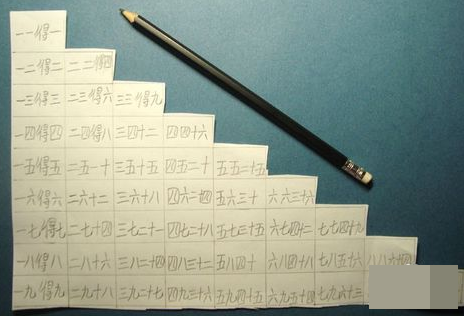 一一得一
一二得二 二二得四
一三得三 二三得六 三三得九
一四得四 二四得八 三四十二 四四十六
一五得五 二五一十 三五十五 四五二十 五五二十五
一六得六 二六十二 三六十八 四六二四 五六三十 六六三十六
一七得七 二七十四 三七二十一 四七二十八 五七三十五 六七四十二 七七四十九
一八得八 二八十六 三八二十四 四八三十二 五八四十 六八四十八 七八五十六 八八六十四
一九得九 二九十八 三九二十七 四九三十六 五九四十五 六九五十四 七九六十三